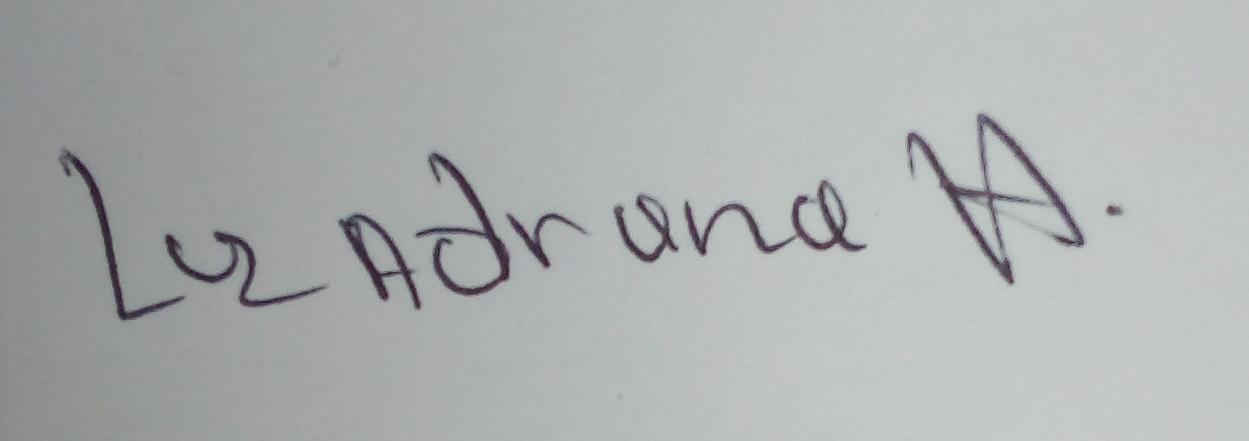 Luz Adriana